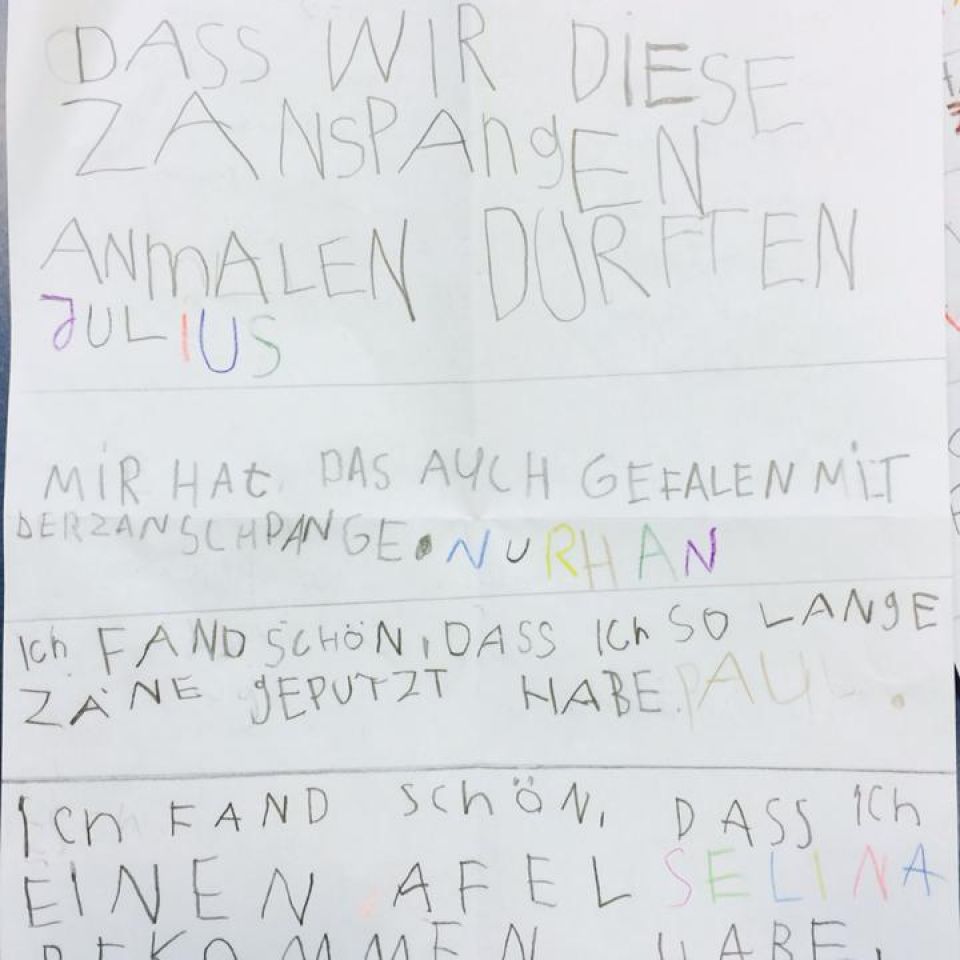 DASS WIR DIESE
ZANSPANgEN
ANmALEN DURFTEN
JULIUS
MiR HAt DAS AUCH GEFALEN MIT
DERZANSCHPANGE. NURHAN
Ich FAND SCHÖN, DASS ICh SO LANgE
ZÄNE gEPUTZT HABE. PAUL.
Ich FAND SchÖN, DASS ICh
EINEN AFEL SELINA
BEKOMMEN HABE.